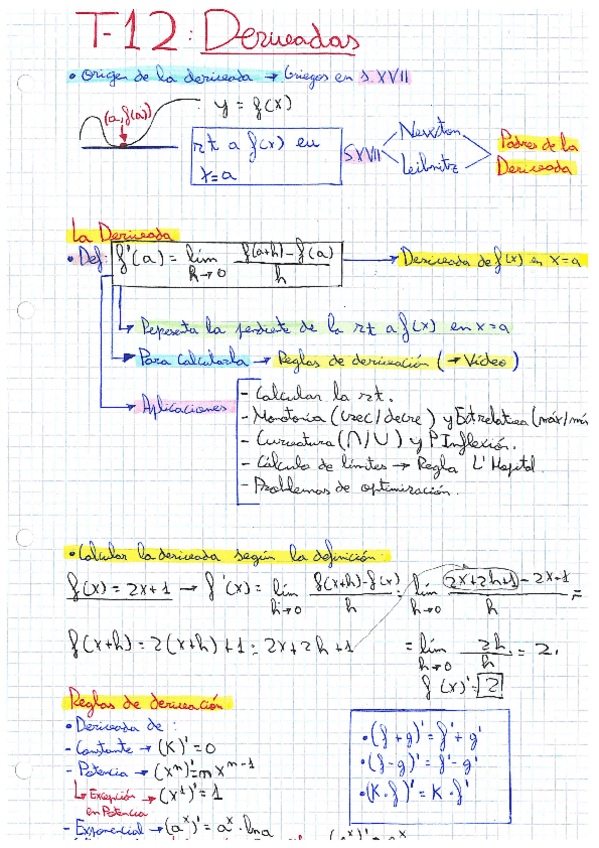 T-12: Derivadas
• Origen de la derivada → Griegos en S. XVII
(a, f(a))
y = f(x)
rt a f(x) en
x=a
S.XVII
Newton
Leibnitz
Padres de la
Derivada
La Derivada
• Def: f'(a) = lím h→0 f(a+h)-f(a) / h → Derivada de f(x) en x=a
→ Representa la pendiente de la rt a f(x) en x=a
→ Para calcularla → Reglas de derivación (→ Vídeo)
→ Aplicaciones
- Calcular la rt.
- Monotonía (crec/decre) y Ext relativa (máx/mín
- Curvatura (∩/∪) y P Inflexión.
- Cálculo de límites → Regla L'Hopital
- Problemas de optimización.
• Calcular la derivada según la definición:
f(x) = 2x+1 → f'(x) = lím h→0 f(x+h)-f(x) / h = lím h→0 2x+2h+1-2x+1 / h =
f(x+h) = 2(x+h)+1 = 2x+2h+1
= lím h→0 2h / h = 2.
f(x)' = 2
Reglas de derivación
• Derivada de:
- Constante → (K)' = 0
- Potencia → (xⁿ)' = n xⁿ⁻¹
↳ Excepción en Potencia → (x¹)' = 1
- Exponencial → (aˣ)' = aˣ · lna
• (f+g)' = f'+g'
• (f-g)' = f'-g'
• (K·f)' = K·f'